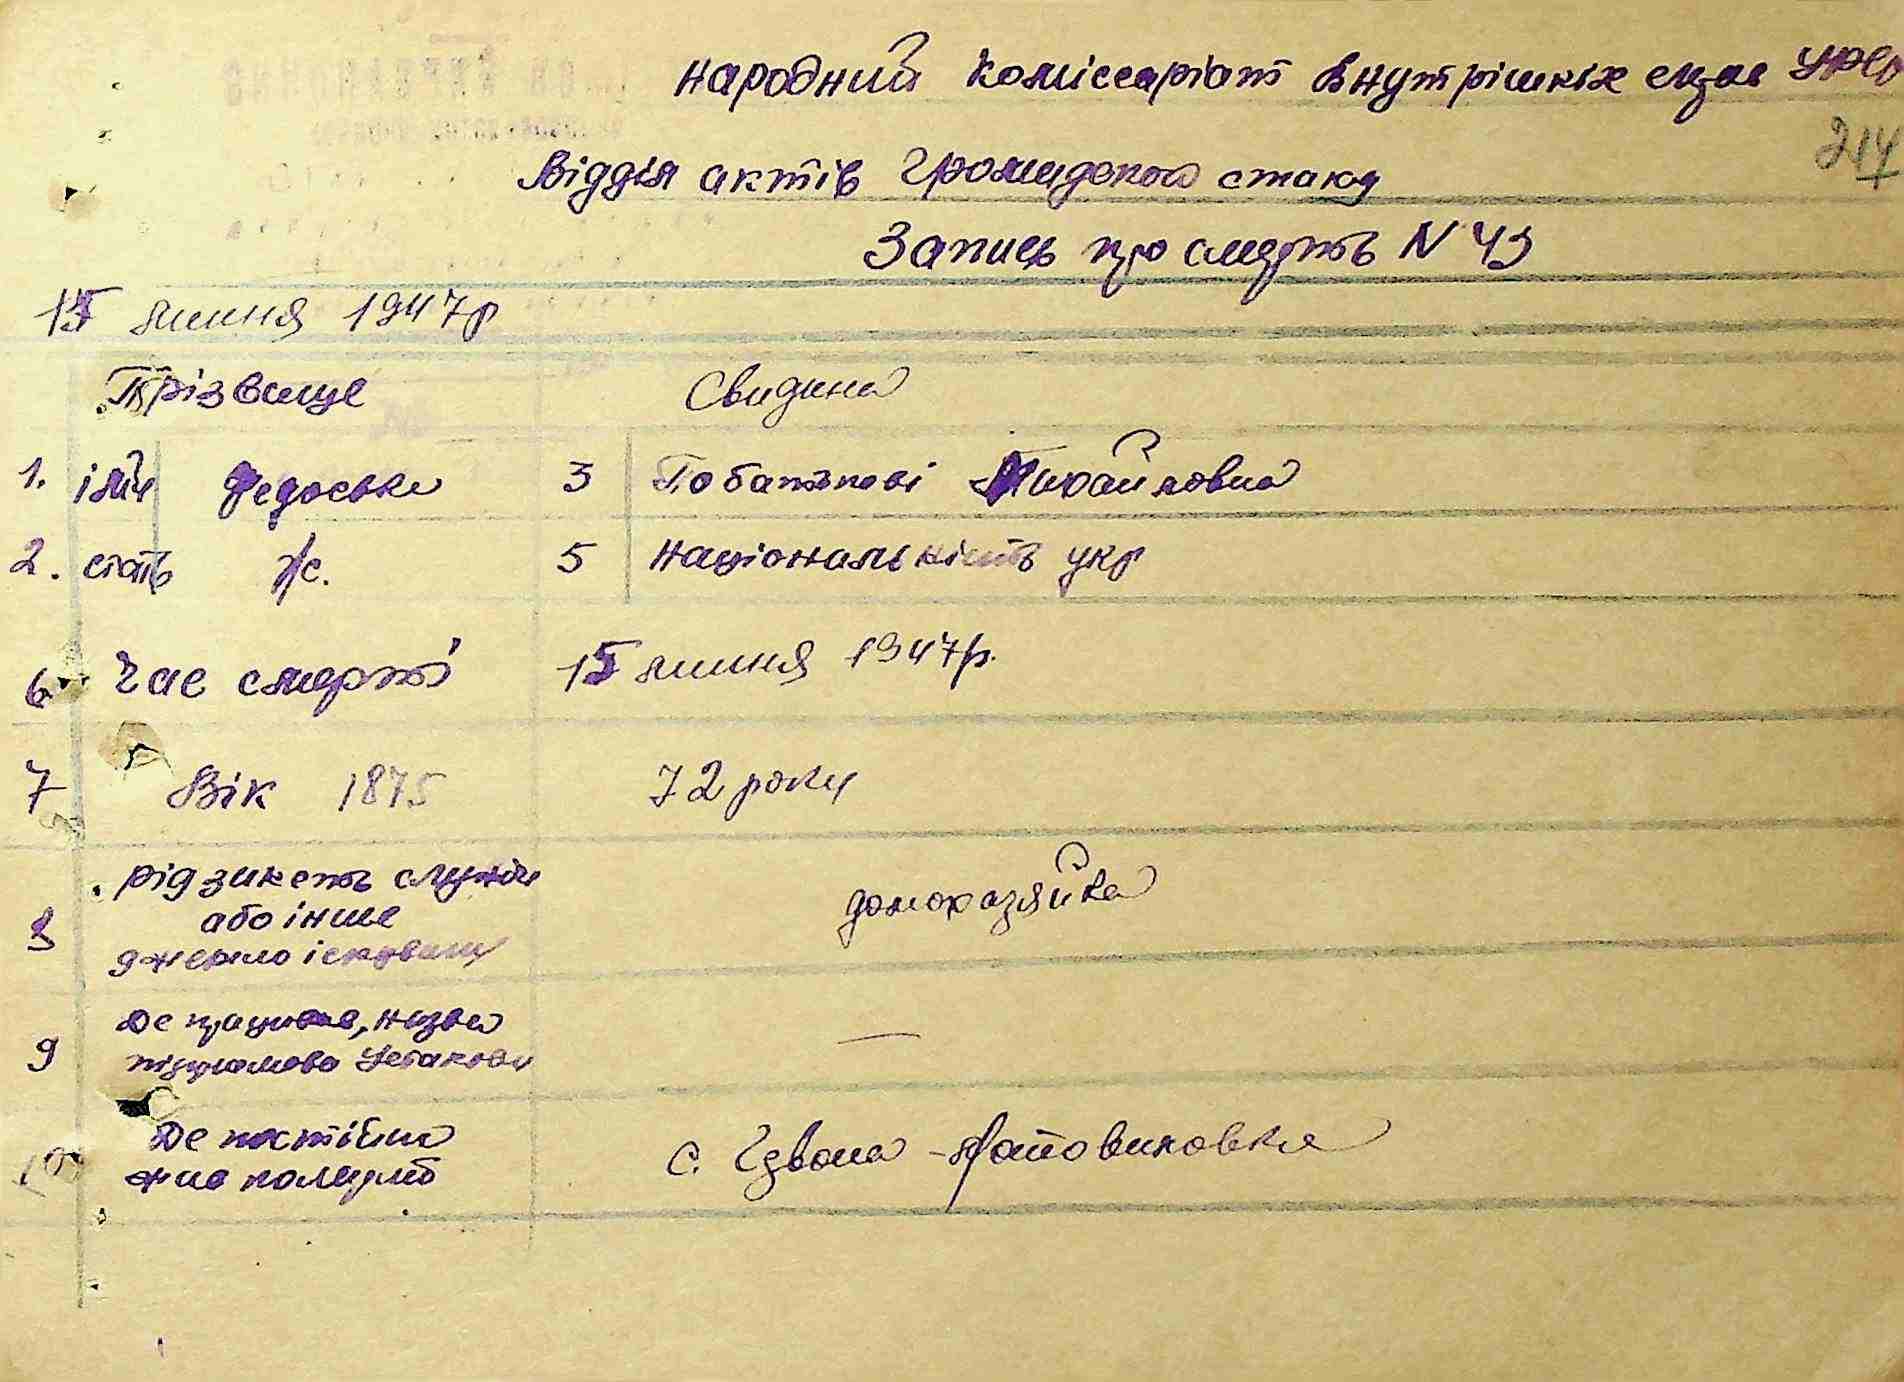 Народний Коміссаріат внутрішніх справ УРСР
217
Відділ актів громадського стану
Запись про смерть N 43
15 липня 1947р
Прізвище Свидина
1. імя Федоська 3 По батькові Михайловна
2. стать ж. 5 Національність укр
6 Час смерті 15 липня 1947р.
7 Вік 1875 72 роки
8 рід занять служби
або інше домохазяйка
джерело існування
9 Де працював, назва
підприємства установи —
10 Де постійно
жив померлий с. Здвона